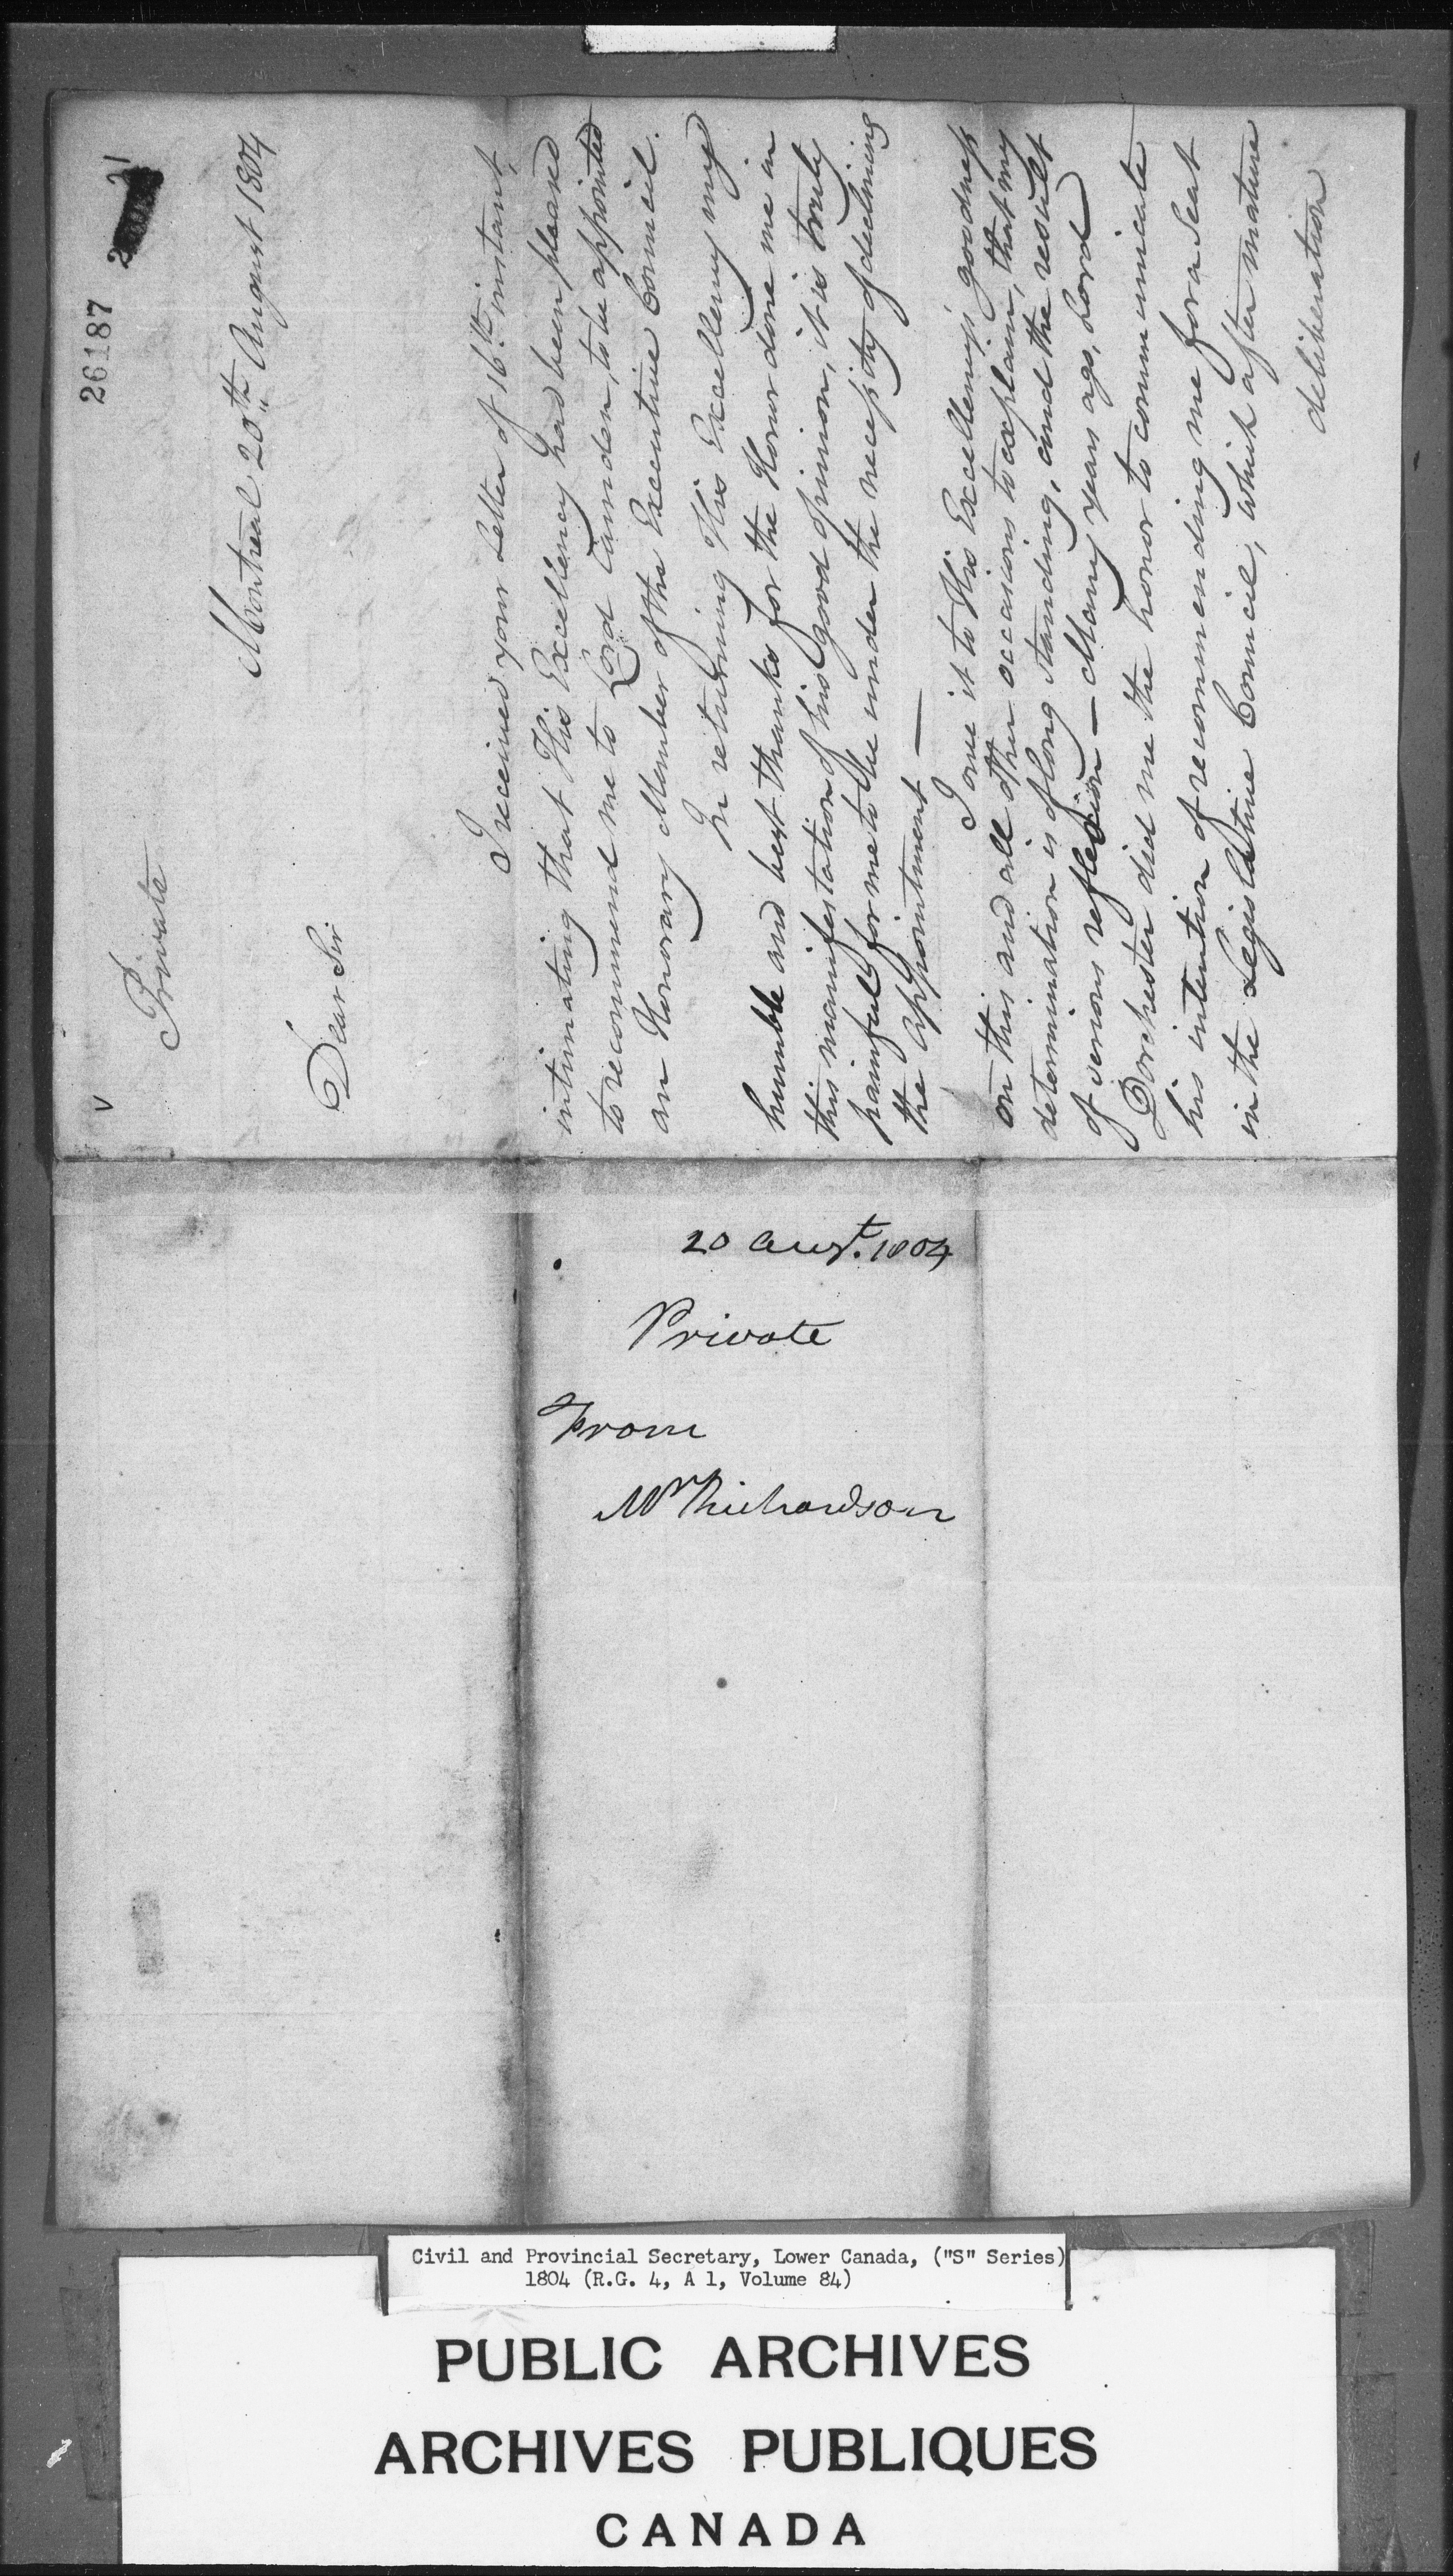 26187
21
Private
Montreal 20th August 1804
Dear Sir
I received your Letter of 16th instant,
intimating that His Excellency had been pleased
to recommend me to Lord Camden, to be appointed
an Honorary Member of the Executive Council.
In returning His Excellency my
humble and best thanks for the Honor done me in
this manifestation of his good opinion, it is truly
painful for me to be under the necessity of declining
the appointment —
I owe it to His Excellency's goodness
on this and all other occasions to explain, that my
determination is of long standing, and the result
of serious reflexion — Many years ago, Lord
Dorchester did me the honor to communicate
his intention of recommending me for a Seat
in the Legislative Council, which after mature
deliberation
20 Augt. 1804
Private
From
Mr Richardson
Civil and Provincial Secretary, Lower Canada, ("S" Series)
1804 (R.G. 4, A 1, Volume 84)
PUBLIC ARCHIVES
ARCHIVES PUBLIQUES
CANADA